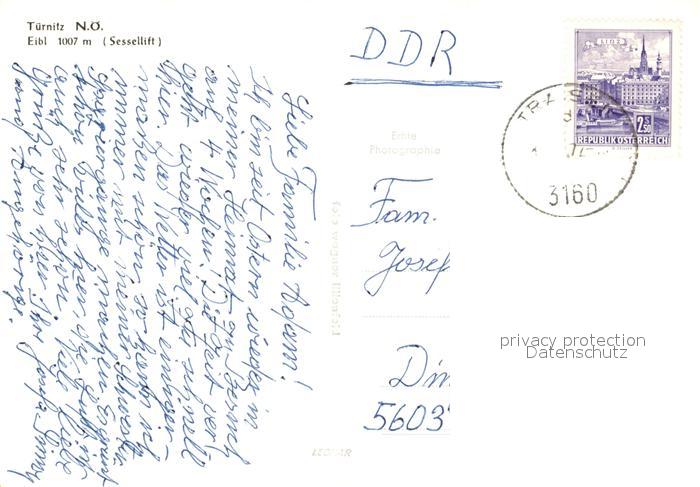 Türnitz N.Ö.
Eibl 1007 m (Sessellift)
DDR
LINZ
2.50
REPUBLIK ÖSTERREICH
3160
Echte
Photographie
Fam.
Josef
Din
5603
privacy protection
Datenschutz
Liebe Familie Adam!
Ich bin seit Ostern wieder in
meiner Heimat zu Besuch
auf 4 Wochen. Die Zeit ver
geht wieder viel zu schnell
hier. Das Wetter ist einiger-
maßen schön, so kann ich
immer mit meiner Schwester
Spaziergänge machen. Es grünt
schon hier, die Luft ist
auch sehr schön. Viele liebe
Grüße von hier Ihr
und Angehörige.